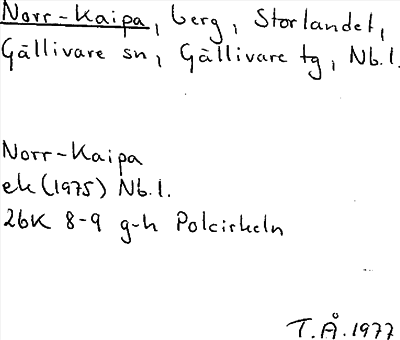 Norr-Kaipa, berg, Storlandet,
Gällivare sn, Gällivare tg, Nb.l.
Norr-Kaipa
ek (1975) Nb.l.
26K 8-9 g-h Polcirkeln
T.Å. 1977